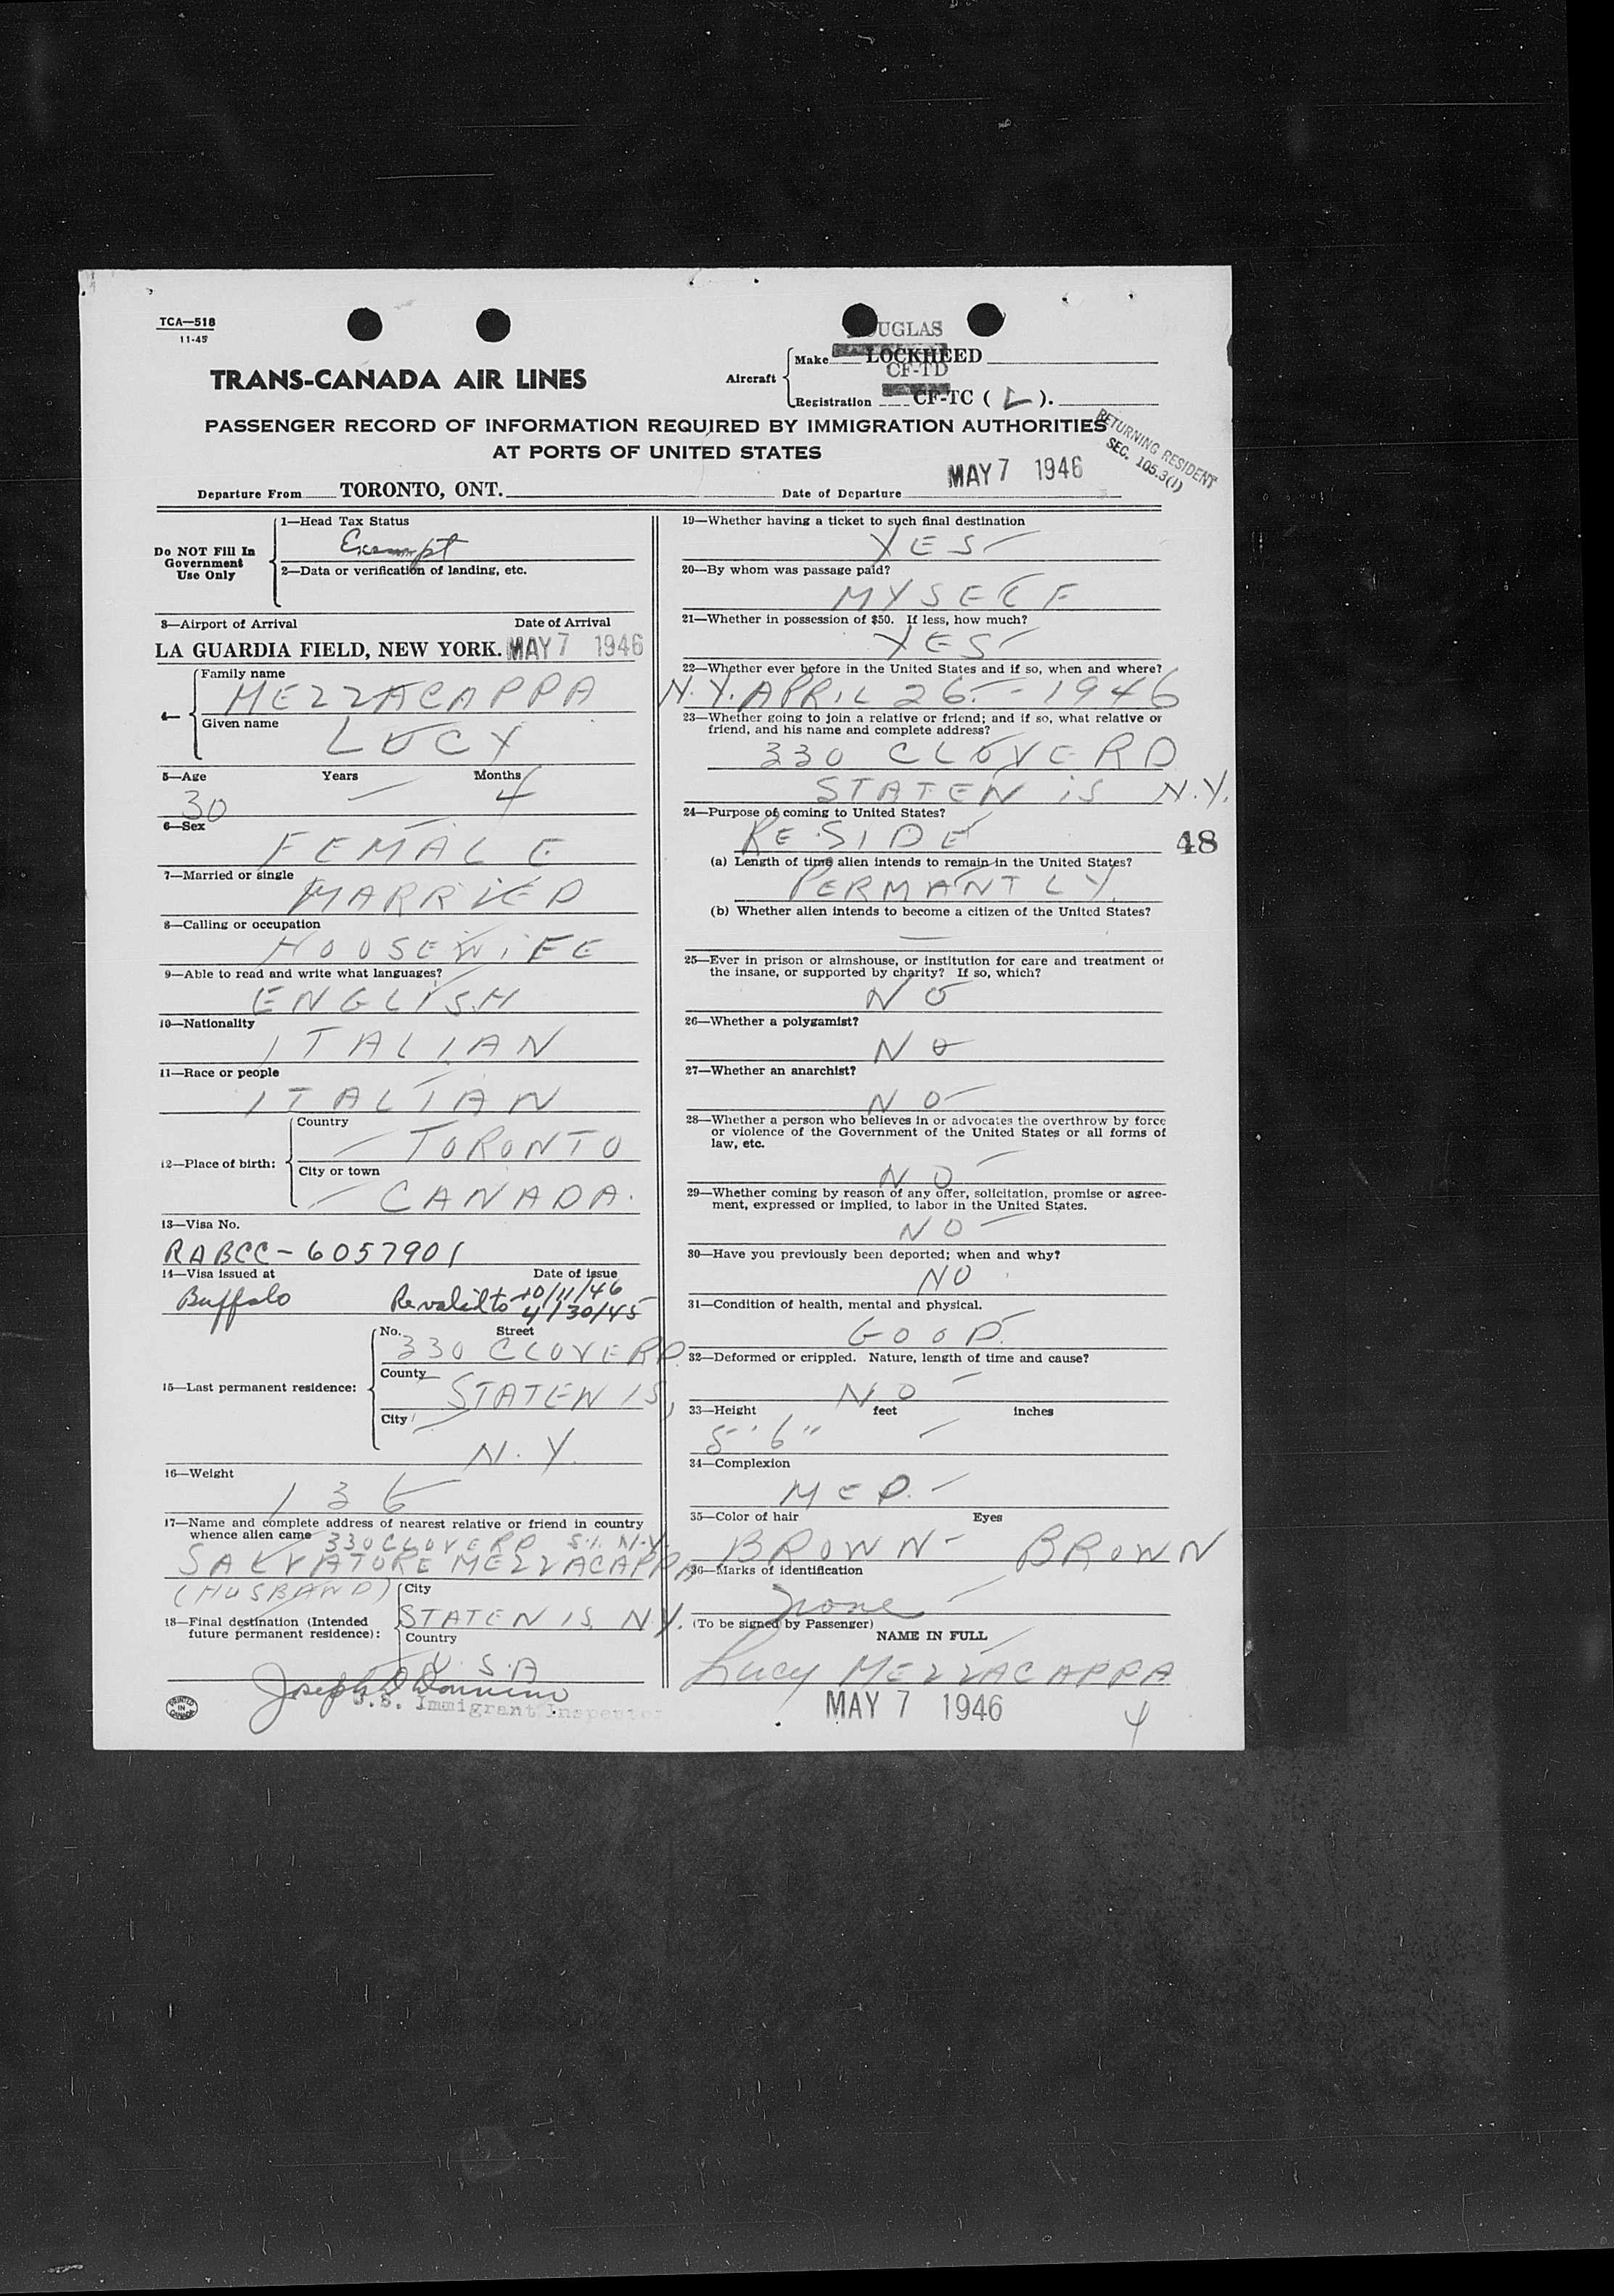 TCA—518
11-45
UGLAS
TRANS-CANADA AIR LINES
Aircraft
Make LOCKHEED
CF-TD
Registration CF-TC ( L ).
PASSENGER RECORD OF INFORMATION REQUIRED BY IMMIGRATION AUTHORITIES
AT PORTS OF UNITED STATES
RETURNING RESIDENT
SEC. 105.3(1)
Departure From TORONTO, ONT. Date of Departure MAY 7 1946
Do NOT Fill In
Government
Use Only
1—Head Tax Status
Exempt
2—Data or verification of landing, etc.
3—Airport of Arrival Date of Arrival
LA GUARDIA FIELD, NEW YORK. MAY 7 1946
4—
Family name
MEZZACAPPA
Given name
LUCY
5—Age Years Months
30 — 4
6—Sex
FEMALE
7—Married or single
MARRIED
8—Calling or occupation
HOUSEWIFE
9—Able to read and write what languages?
ENGLISH
10—Nationality
ITALIAN
11—Race or people
ITALIAN
12—Place of birth:
Country
TORONTO
City or town
CANADA.
13—Visa No.
RABCC - 6057901
14—Visa issued at Date of issue
Buffalo Revalid to 10/11/46
4/30/45
15—Last permanent residence:
No. Street
330 CLOVE RD.
County
STATEN IS,
City
N.Y.
16—Weight
136
17—Name and complete address of nearest relative or friend in country
whence alien came 330 CLOVE RD S.I. N.Y.
SALVATORE MEZZACAPPA
(HUSBAND)
18—Final destination (Intended
future permanent residence):
City
STATEN IS. N.Y.
Country
U.S.A
U.S. Immigrant Inspector
PRINTED
IN
CANADA
19—Whether having a ticket to such final destination
YES
20—By whom was passage paid?
MYSELF
21—Whether in possession of $50. If less, how much?
YES
22—Whether ever before in the United States and if so, when and where?
N.Y. APRIL 26 - 1946
23—Whether going to join a relative or friend; and if so, what relative or
friend, and his name and complete address?
330 CLOVE RD
STATEN IS N.Y.
24—Purpose of coming to United States?
RESIDE
48
(a) Length of time alien intends to remain in the United States?
PERMANTLY.
(b) Whether alien intends to become a citizen of the United States?
—
25—Ever in prison or almshouse, or institution for care and treatment of
the insane, or supported by charity? If so, which?
NO
26—Whether a polygamist?
NO
27—Whether an anarchist?
NO
28—Whether a person who believes in or advocates the overthrow by force
or violence of the Government of the United States or all forms of
law, etc.
NO
29—Whether coming by reason of any offer, solicitation, promise or agree-
ment, expressed or implied, to labor in the United States.
NO
30—Have you previously been deported; when and why?
NO
31—Condition of health, mental and physical.
GOOD.
32—Deformed or crippled. Nature, length of time and cause?
NO
33—Height feet inches
5'6"
34—Complexion
MED.
35—Color of hair Eyes
BROWN BROWN
36—Marks of identification
None
(To be signed by Passenger)
NAME IN FULL
Lucy MEZZACAPPA
MAY 7 1946
4